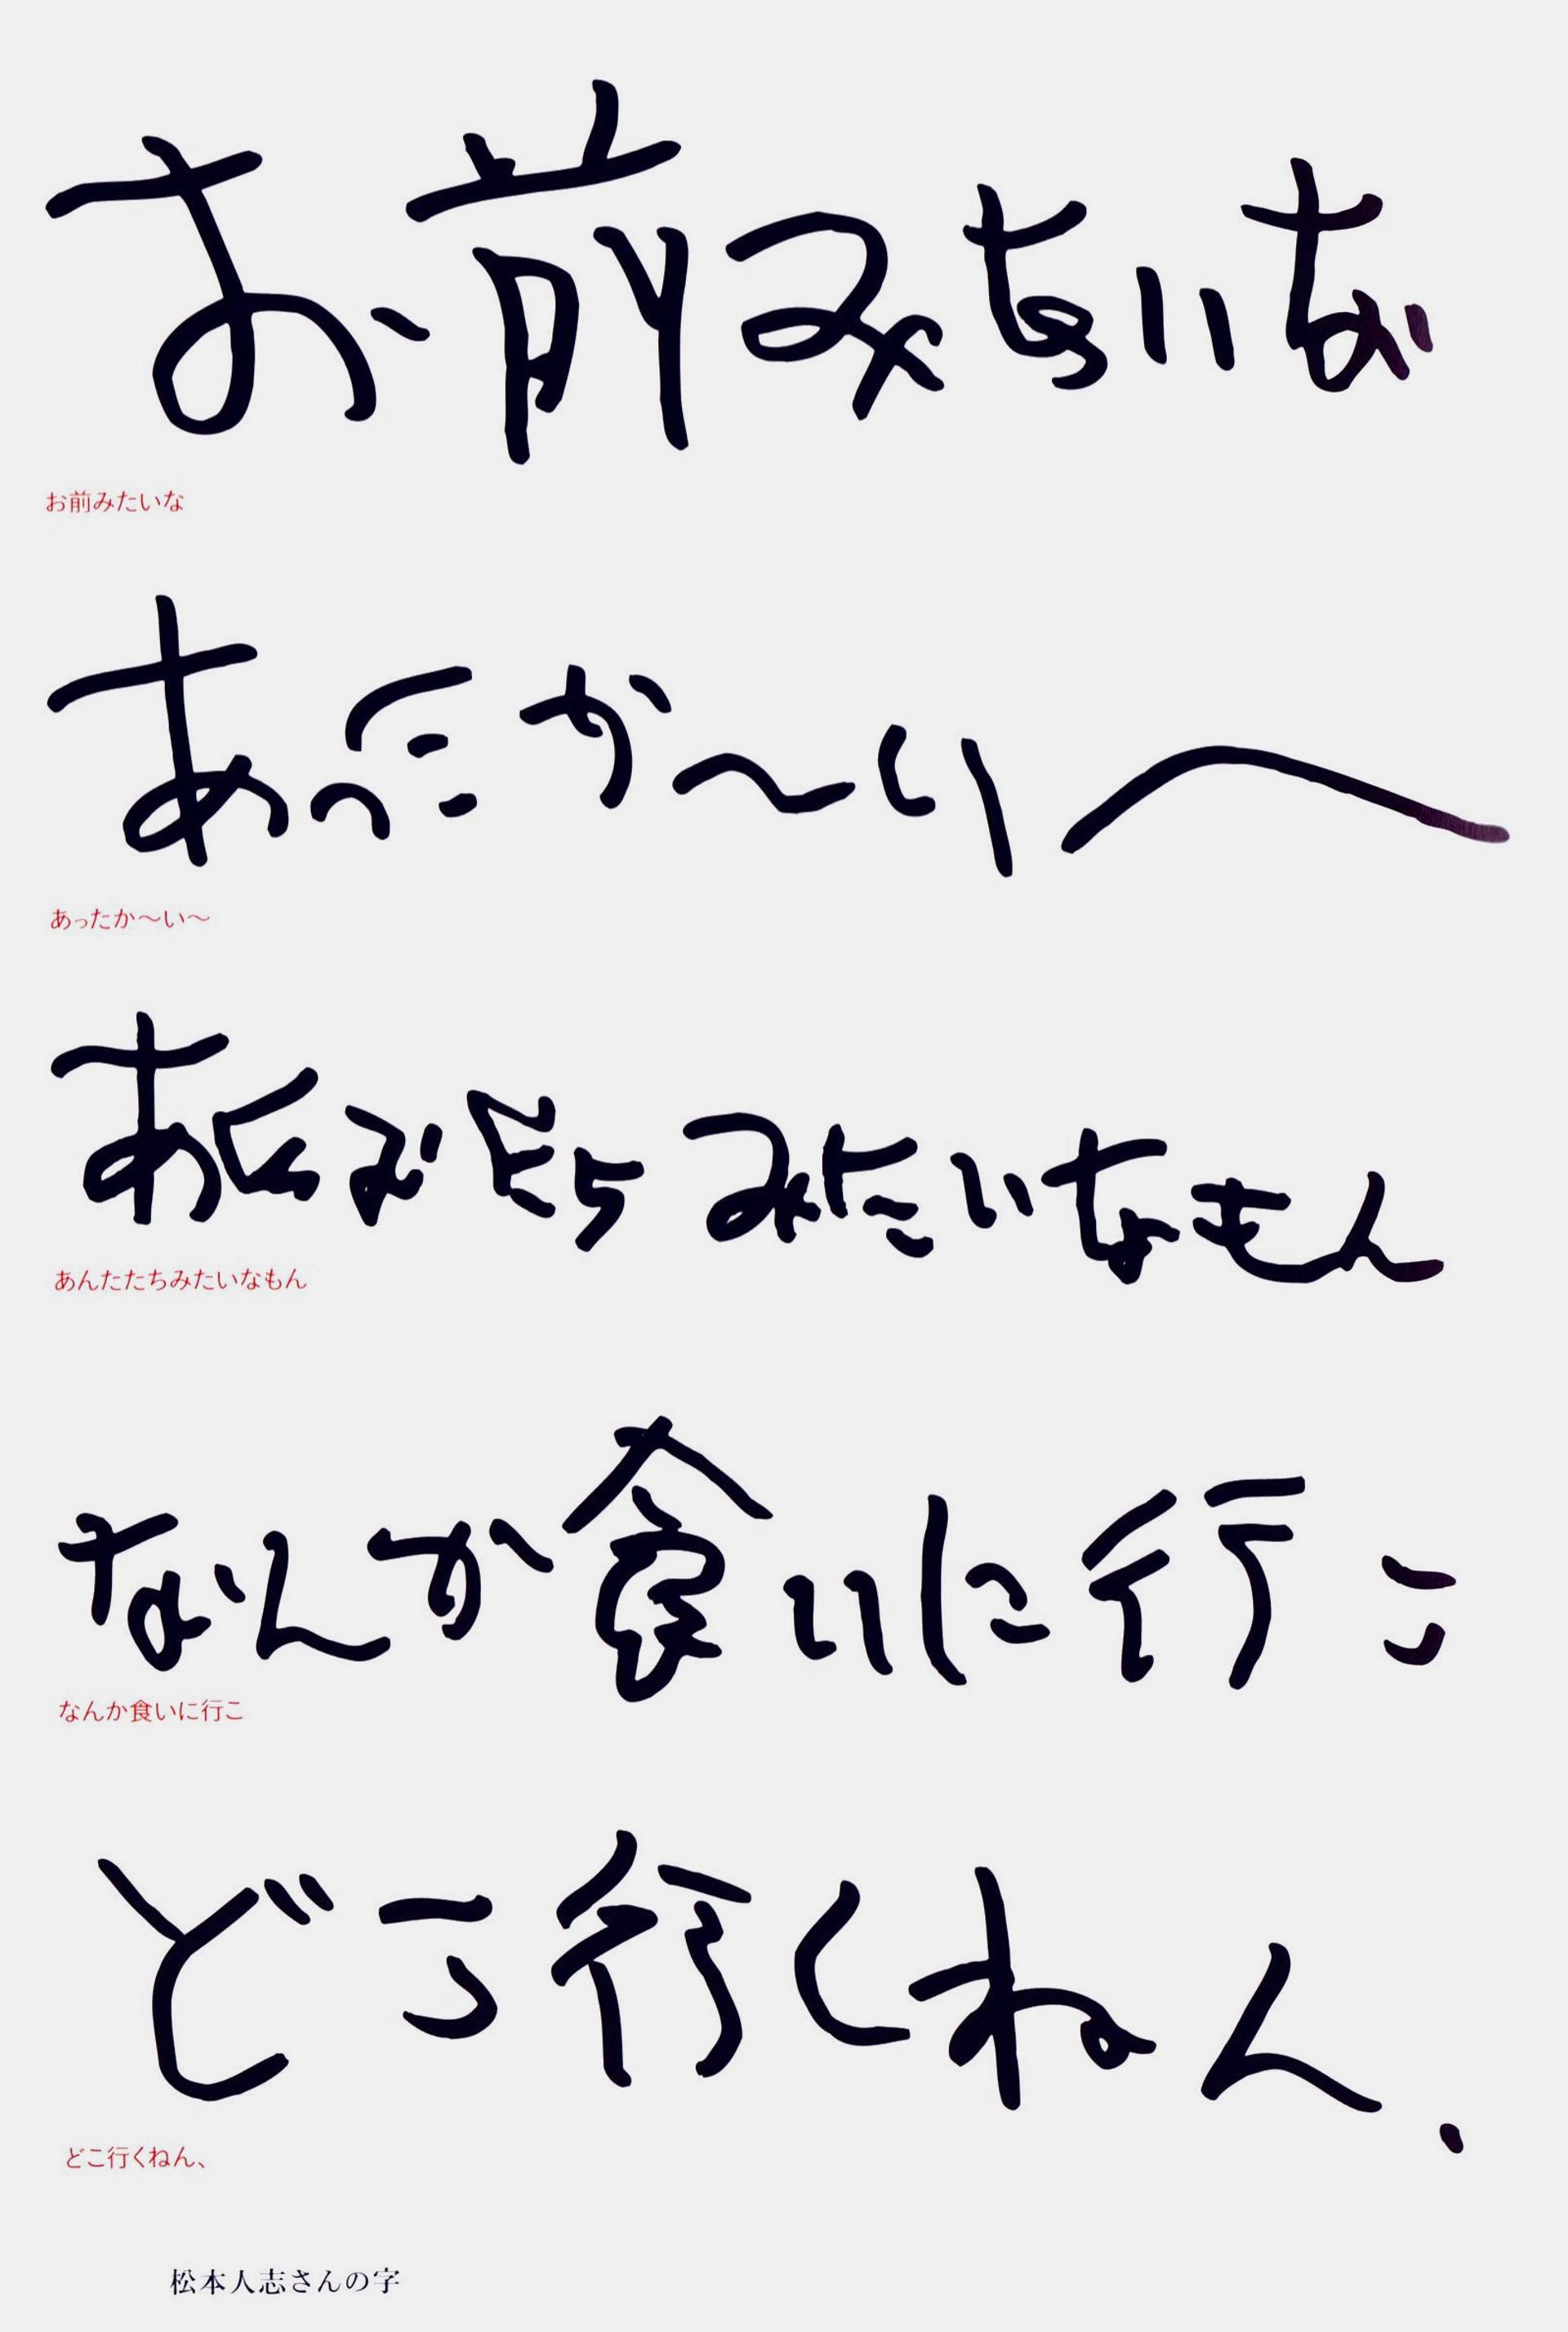 お前みたいな
お前みたいな
あったか〜い〜
あったか〜い〜
あんたたちみたいなもん
あんたたちみたいなもん
なんか食いに行こ
なんか食いに行こ
どこ行くねん、
どこ行くねん、
松本人志さんの字